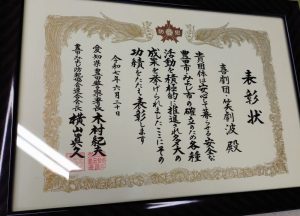 表彰状
喜劇団・笑劇波 殿
貴団体は安心して暮らせる安全な
豊田市・みよし市の確立のため各種
活動を積極的に推進され多大の
成果を挙げられましたここにその
功績をたたえ表彰します
令和七年六月二十日
愛知県豊田警察署長 木村紀夫
豊田みよし防犯協会連合会会長 横山真久